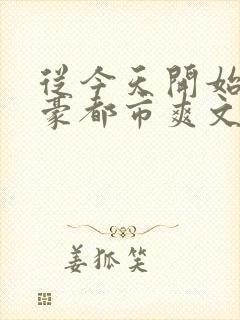 從今天開始
豪都市爽文
姜狐笑